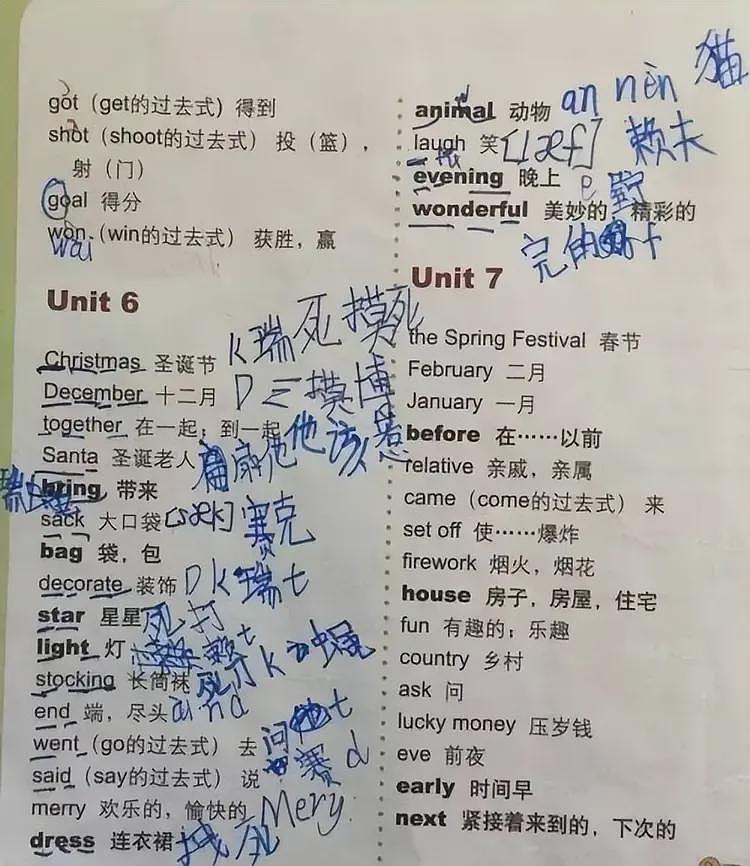 got（get的过去式）得到
shot（shoot的过去式）投（篮），
射（门）
goal 得分
won（win的过去式）获胜，赢
Unit 6
Christmas 圣诞节 k瑞死摸死
December 十二月 D三摸博
together 在一起；到一起 他该惹
Santa 圣诞老人 扇他
bring 带来
sack 大口袋 [sæk] 赛克
bag 袋，包
decorate 装饰 D K瑞t
star 星星 死打
light 灯 t
stocking 长筒袜 死打k
end 端，尽头 ai nd
went（go的过去式）去 问 t
said（say的过去式）说 赛d
merry 欢乐的，愉快的 Mery
dress 连衣裙 死
animal 动物 an nèn 猫
laugh 笑 [læf] 赖夫
evening 晚上 e
wonderful 美妙的，精彩的
完的
Unit 7
the Spring Festival 春节
February 二月
January 一月
before 在……以前
relative 亲戚，亲属
came（come的过去式）来
set off 使……爆炸
firework 烟火，烟花
house 房子，房屋，住宅
fun 有趣的；乐趣
country 乡村
ask 问
lucky money 压岁钱
eve 前夜
early 时间早
next 紧接着来到的，下次的